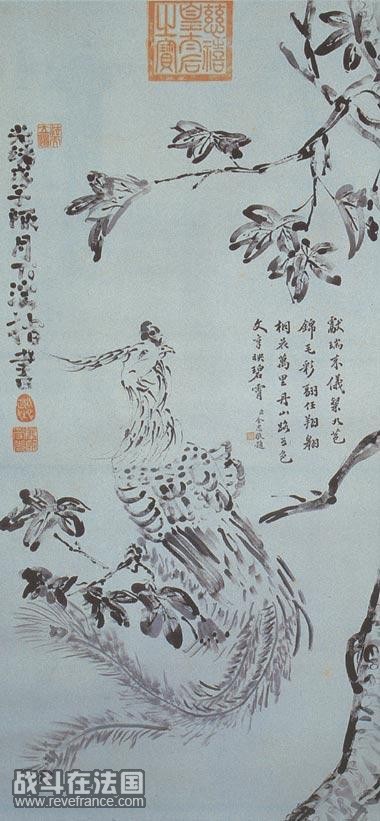 慈禧
皇太后
之寶
獻瑞來儀粲九苞
錦毛彩翮任翔翱
桐花萬里丹山路五色
文章映碧霄
光緒戊子陬月下澣指畫
战斗在法国
www.revefrance.com